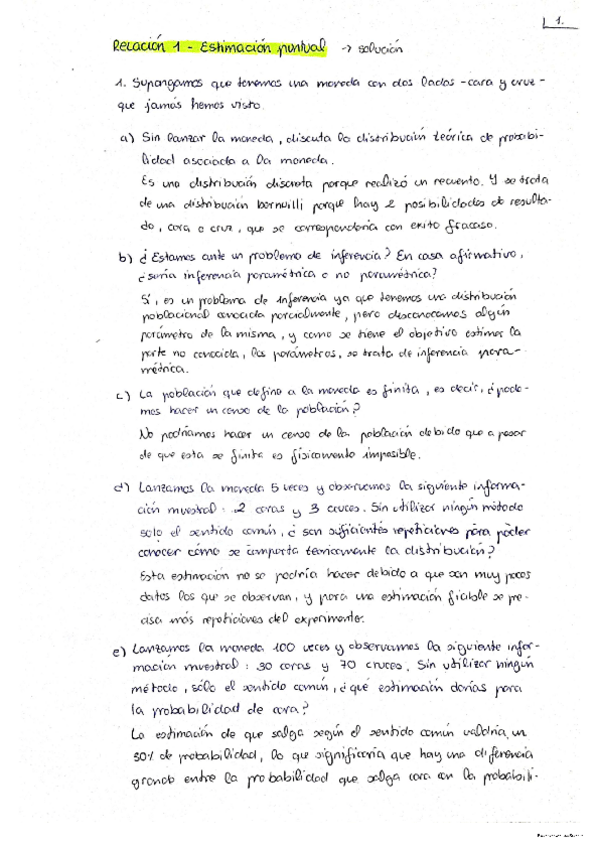 1.
Relación 1 - Estimación puntual → solución
1. Supongamos que tenemos una moneda con dos lados - cara y cruz -
que jamás hemos visto.
a) Sin lanzar la moneda, discuta la distribución teórica de probabi-
lidad asociada a la moneda.
Es una distribución discreta porque realizó un recuento. Y se trata
de una distribución bornuilli porque hay 2 posibilidades de resulta-
do, cara o cruz, que se correspondería con exito fracaso.
b) ¿Estamos ante un problema de inferencia? En caso afirmativo,
¿sería inferencia paramétrica o no paramétrica?
Sí, es un problema de inferencia ya que tenemos una distribución
poblacional conocida parcialmente, pero desconocemos algún
parámetro de la misma, y como se tiene el objetivo estimar la
parte no conocida, los parámetros, se trata de inferencia para-
métrica.
c) La población que define a la moneda es finita, es decir, ¿pode-
mos hacer un censo de la población?
No podríamos hacer un censo de la población debido que a pesar
de que esta se finita es físicamente imposible.
d) Lanzamos la moneda 5 veces y observamos la siguiente informa-
ción muestral: 2 caras y 3 cruces. Sin utilizar ningún método
solo el sentido común, ¿son suficientes repeticiones para poder
conocer cómo se comporta teóricamente la distribución?
Esta estimación no se podría hacer debido a que son muy pocos
datos los que se observan, y para una estimación fiable se pre-
cisa más repeticiones del experimento.
e) Lanzamos la moneda 100 veces y observamos la siguiente infor-
mación muestral: 30 caras y 70 cruces. Sin utilizar ningún
método, sólo el sentido común, ¿qué estimación darías para
la probabilidad de cara?
La estimación de que salga según el sentido común valdría un
30% de probabilidad, lo que significaría que hay una diferencia
grande entre la probabilidad que salga cara con la probabili-